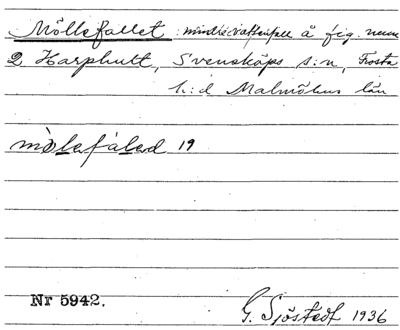 Möllefallet mindre vattenfall å fig. num
2 Harphult, Svensköps s:n, Frosta
h:d Malmöhus län
19
Nr 5942.
G. Sjöstedt 1936